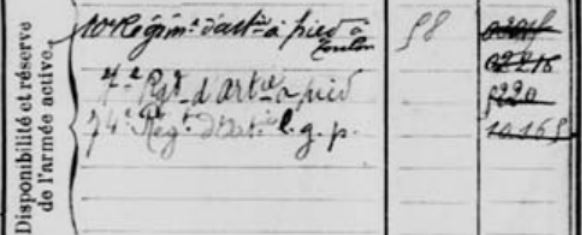 Disponibilité et réserve
de l'armée active.
10e Régimt d'artie à pied à
Toulon
58
02218
7e Rgt d'artie à pied
5220
74e Régt d'artie l.g.p.
10165